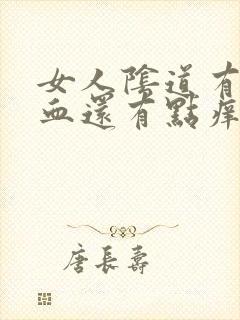 女人陰道有
血還有點痒
唐長壽